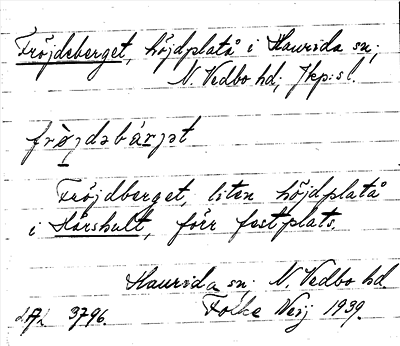 Fröjdeberget, höjdplatå i Haurida sn;
N. Vedbo hd; Jkp:s l.
frö̀jdəbárjət
Fröjdberget, liten höjdplatå
i Hårshult, förr festplats.
Haurida sn. N. Vedbo hd.
3796. Folke Neij 1939.